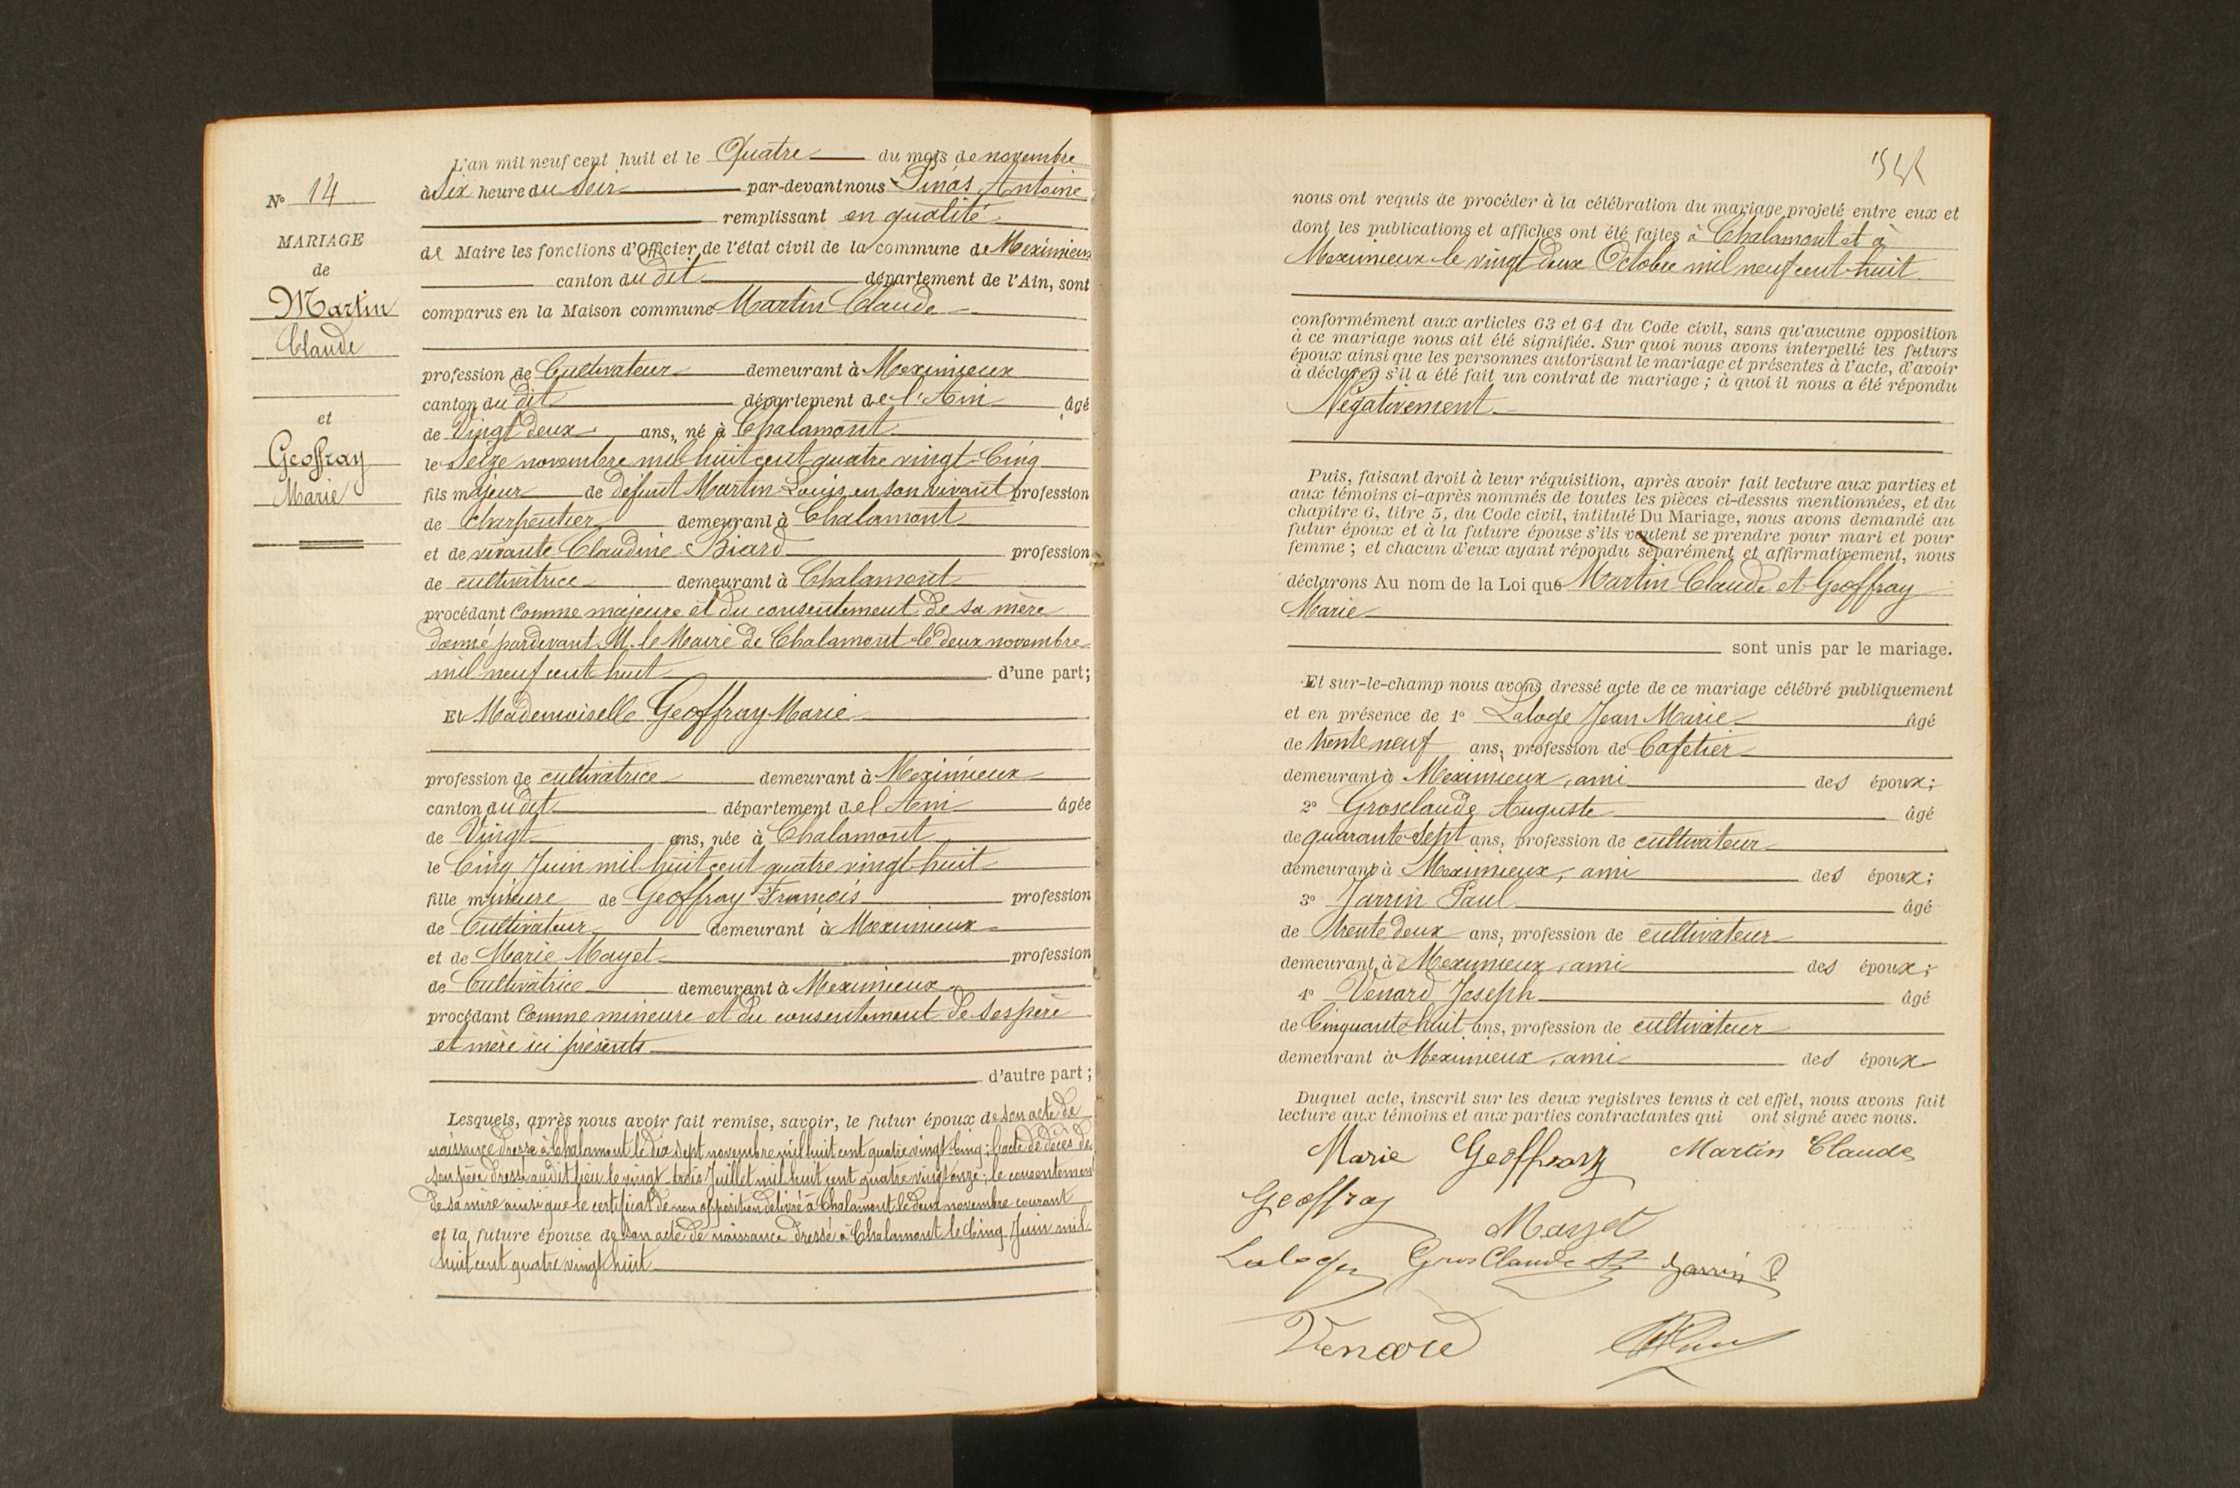 L'an mil neuf cent huit et le Quatre du mois de novembre
à Six heure du Soir par-devant nous Pinás Antoine
remplissant en qualité
de Maire les fonctions d'Officier de l'état civil de la commune de Meximieux
canton du dit département de l'Ain, sont
comparus en la Maison commune Martin Claude
profession de Cultivateur demeurant à Meximieux
canton du dit département de l'Ain âgé
de Vingt deux ans, né à Chalamont
le Seize novembre mil huit cent quatre vingt-Cinq
fils majeur de défunt Martin Louis en son vivant profession
de charpentier demeurant à Chalamont
et de vivante Claudine Biard profession
de cultivatrice demeurant à Chalamont
procédant comme majeure et du consentement de sa mère
donné pardevant M. le Maire de Chalamont le deux novembre
mil neuf cent huit d'une part;
Et Mademoiselle Geoffray Marie
profession de cultivatrice demeurant à Meximieux
canton du dit département de l'Ain âgée
de Vingt ans, née à Chalamont
le Cinq Juin mil huit cent quatre vingt-huit
fille mineure de Geoffray François profession
de Cultivateur demeurant à Meximieux
et de Marie Mayet profession
de Cultivatrice demeurant à Meximieux
procédant comme mineure et du consentement de ses père
et mère ici présents
d'autre part;
Lesquels, après nous avoir fait remise, savoir, le futur époux de son acte de
naissance dressé à Chalamont le dix sept novembre mil huit cent quatre vingt cinq; l'acte de décès de
son père dressé audit lieu le vingt-trois Juillet mil huit cent quatre vingt onze; le consentement
de sa mère ainsi que le certificat de non opposition délivré à Chalamont le deux novembre courant
et la future épouse de son acte de naissance dressé à Chalamont le Cinq Juin mil
huit cent quatre vingt huit
N° 14
MARIAGE
de
Martin
Claude
et
Geoffray
Marie
nous ont requis de procéder à la célébration du mariage projeté entre eux et
dont les publications et affiches ont été faites à Chalamont et à
Meximieux le vingt deux Octobre mil neuf cent huit
conformément aux articles 63 et 64 du Code civil, sans qu'aucune opposition
à ce mariage nous ait été signifiée. Sur quoi nous avons interpellé les futurs
époux ainsi que les personnes autorisant le mariage et présentes à l'acte, d'avoir
à déclarer s'il a été fait un contrat de mariage; à quoi il nous a été répondu
Négativement
Puis, faisant droit à leur réquisition, après avoir fait lecture aux parties et
aux témoins ci-après nommés de toutes les pièces ci-dessus mentionnées, et du
chapitre 6, titre 5, du Code civil, intitulé Du Mariage, nous avons demandé au
futur époux et à la future épouse s'ils veulent se prendre pour mari et pour
femme; et chacun d'eux ayant répondu séparément et affirmativement, nous
déclarons Au nom de la Loi que Martin Claude et Geoffray
Marie
sont unis par le mariage.
Et sur-le-champ nous avons dressé acte de ce mariage célébré publiquement
et en présence de 1° Laloge Jean Marie âgé
de trente neuf ans, profession de Cafetier
demeurant à Meximieux, ami des époux;
2° Grosclaude Auguste âgé
de quarante Sept ans, profession de cultivateur
demeurant à Meximieux, ami des époux;
3° Jarrin Paul âgé
de trente deux ans, profession de cultivateur
demeurant à Meximieux, ami des époux;
4° Venard Joseph âgé
de Cinquante huit ans, profession de cultivateur
demeurant à Meximieux, ami des époux
Duquel acte, inscrit sur les deux registres tenus à cet effet, nous avons fait
lecture aux témoins et aux parties contractantes qui ont signé avec nous.
Marie Geoffray Martin Claude
Geoffray
Mayet
Laloge Gros Claude Jarrin P
Venard